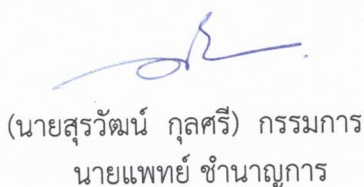 (นายสุรวัฒน์ กุลศรี) กรรมการ
นายแพทย์ ชำนาญการ